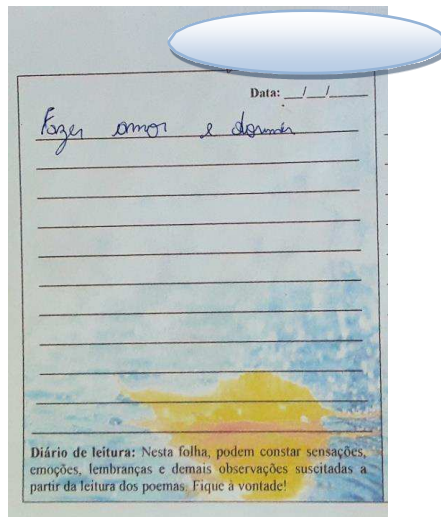 Data: __/__/____
Fazer amor e dormir
Diário de leitura: Nesta folha, podem constar sensações,
emoções, lembranças e demais observações suscitadas a
partir da leitura dos poemas. Fique à vontade!